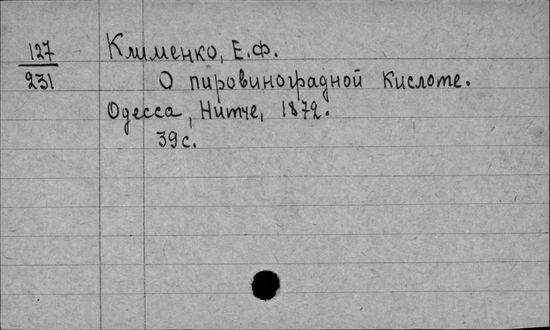 127 Клименко, Е.Ф.
231 О пировиноградной кислоте.
Одесса, Нитче, 1872.
39 с.